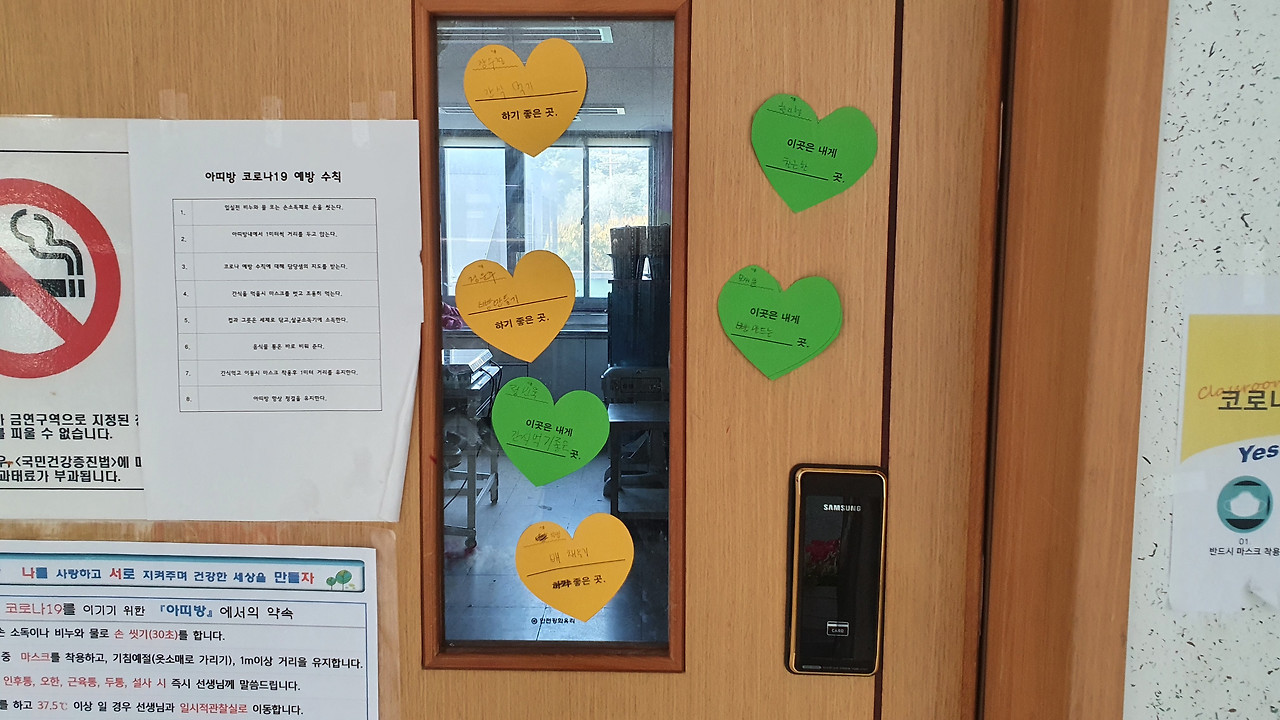 아띠방 코로나19 예방 수칙
1. 입실전 비누와 물 또는 손소독제로 손을 씻는다.
2. 아띠방내에서 1미터씩 거리를 두고 앉는다.
3. 코로나 예방 수칙에 대해 담당샘의 지도를 받는다.
4. 간식을 먹을시 마스크를 벗고 조용히 먹는다.
5. 컵과 그릇은 세제로 닦고,살균소독기에 소독한다.
6. 음식물 통은 바로 비워 준다.
7. 간식먹고 이동시 마스크 착용후 1미터 거리를 유지한다.
8. 아띠방 항상 청결을 유지한다.
금연구역으로 지정된
피울 수 없습니다.
<국민건강증진법>에
과태료가 부과됩니다.
나를 사랑하고 서로 지켜주며 건강한 세상을 만들자
코로나19를 이기기 위한 『아띠방』에서의 약속
소독이나 비누와 물로 손 씻기(30초)를 합니다.
중 마스크를 착용하고, 기침예절(옷소매로 가리기), 1m이상 거리을 유지합니다.
인후통, 오한, 근육통, 즉시 선생님께 말씀드립니다.
를 하고 37.5℃ 이상 일 경우 선생님과 일시적관찰실로 이동합니다.
간식 먹기
하기 좋은 곳.
빵만들기
하기 좋은 곳.
이곳은 내게
곳.
배 채우기
좋은 곳.
이곳은 내게
곳.
이곳은 내게
곳.
SAMSUNG
CARD
Classroom
코로나
Yes
01.
반드시 마스크 착용